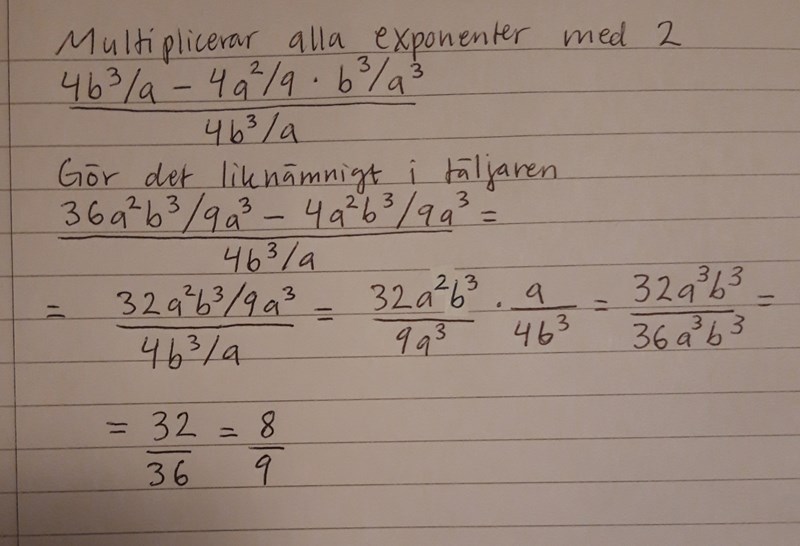 Multiplicerar alla exponenter med 2
4b³/a − 4a²/9 · b³/a³
4b³/a
Gör det liknämnigt i täljaren
36a²b³/9a³ − 4a²b³/9a³ =
4b³/a
= 32a²b³/9a³ = 32a²b³ · a = 32a³b³ =
4b³/a 9a³ 4b³ 36a³b³
= 32 = 8
36 9